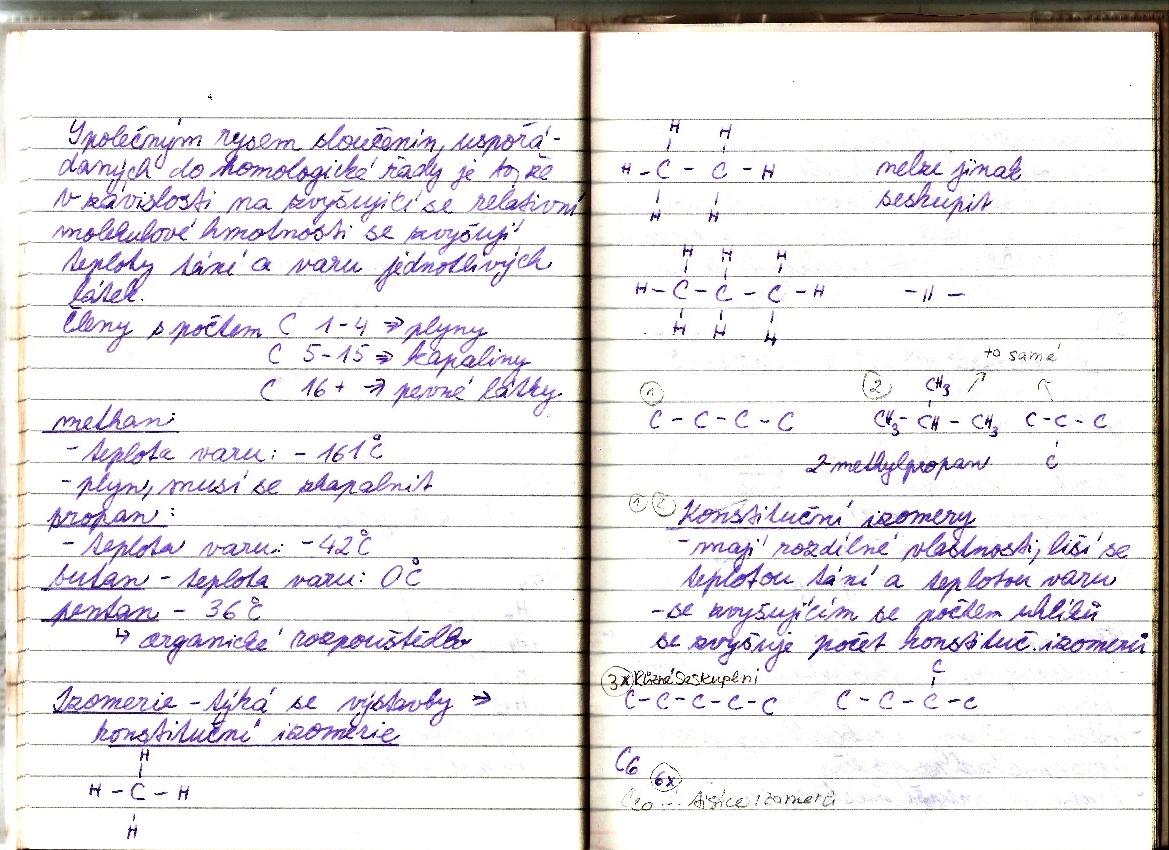 Společným rysem sloučenin, uspořá-
daných do homologické řady je to, že
v závislosti na zvyšující se relativní
molekulové hmotnosti se zvyšují
teploty tání a varu jednotlivých
látek.
Členy s počtem C 1-4 ⇒ plyny
C 5-15 ⇒ kapaliny
C 16+ ⇒ pevné látky
methan:
- teplota varu: - 161°C
- plyn, musí se zkapalnit
propan:
- teplota varu: -42°C
butan - teplota varu: 0°C
pentan - 36°C
↳ organické rozpouštědlo
Izomerie - týká se výstavby ⇒
konstituční izomerie
H
H - C - H
H
H H
H - C - C - H nelze jinak
H H seskupit
H H H
H - C - C - C - H -||-
H H H
to samé
① ② CH3
C - C - C - C CH3 - CH - CH3 C - C - C
2-methylpropan C
① ② Konstituční izomery
- mají rozdílné vlastnosti, liší se
teplotou tání a teplotou varu
- se zvyšujícím se počtem uhlíků
se zvyšuje počet konstituč. izomerů
C
3x Různá seskupení
C - C - C - C - C C - C - C - C
C6 6x
tisíce izomerů